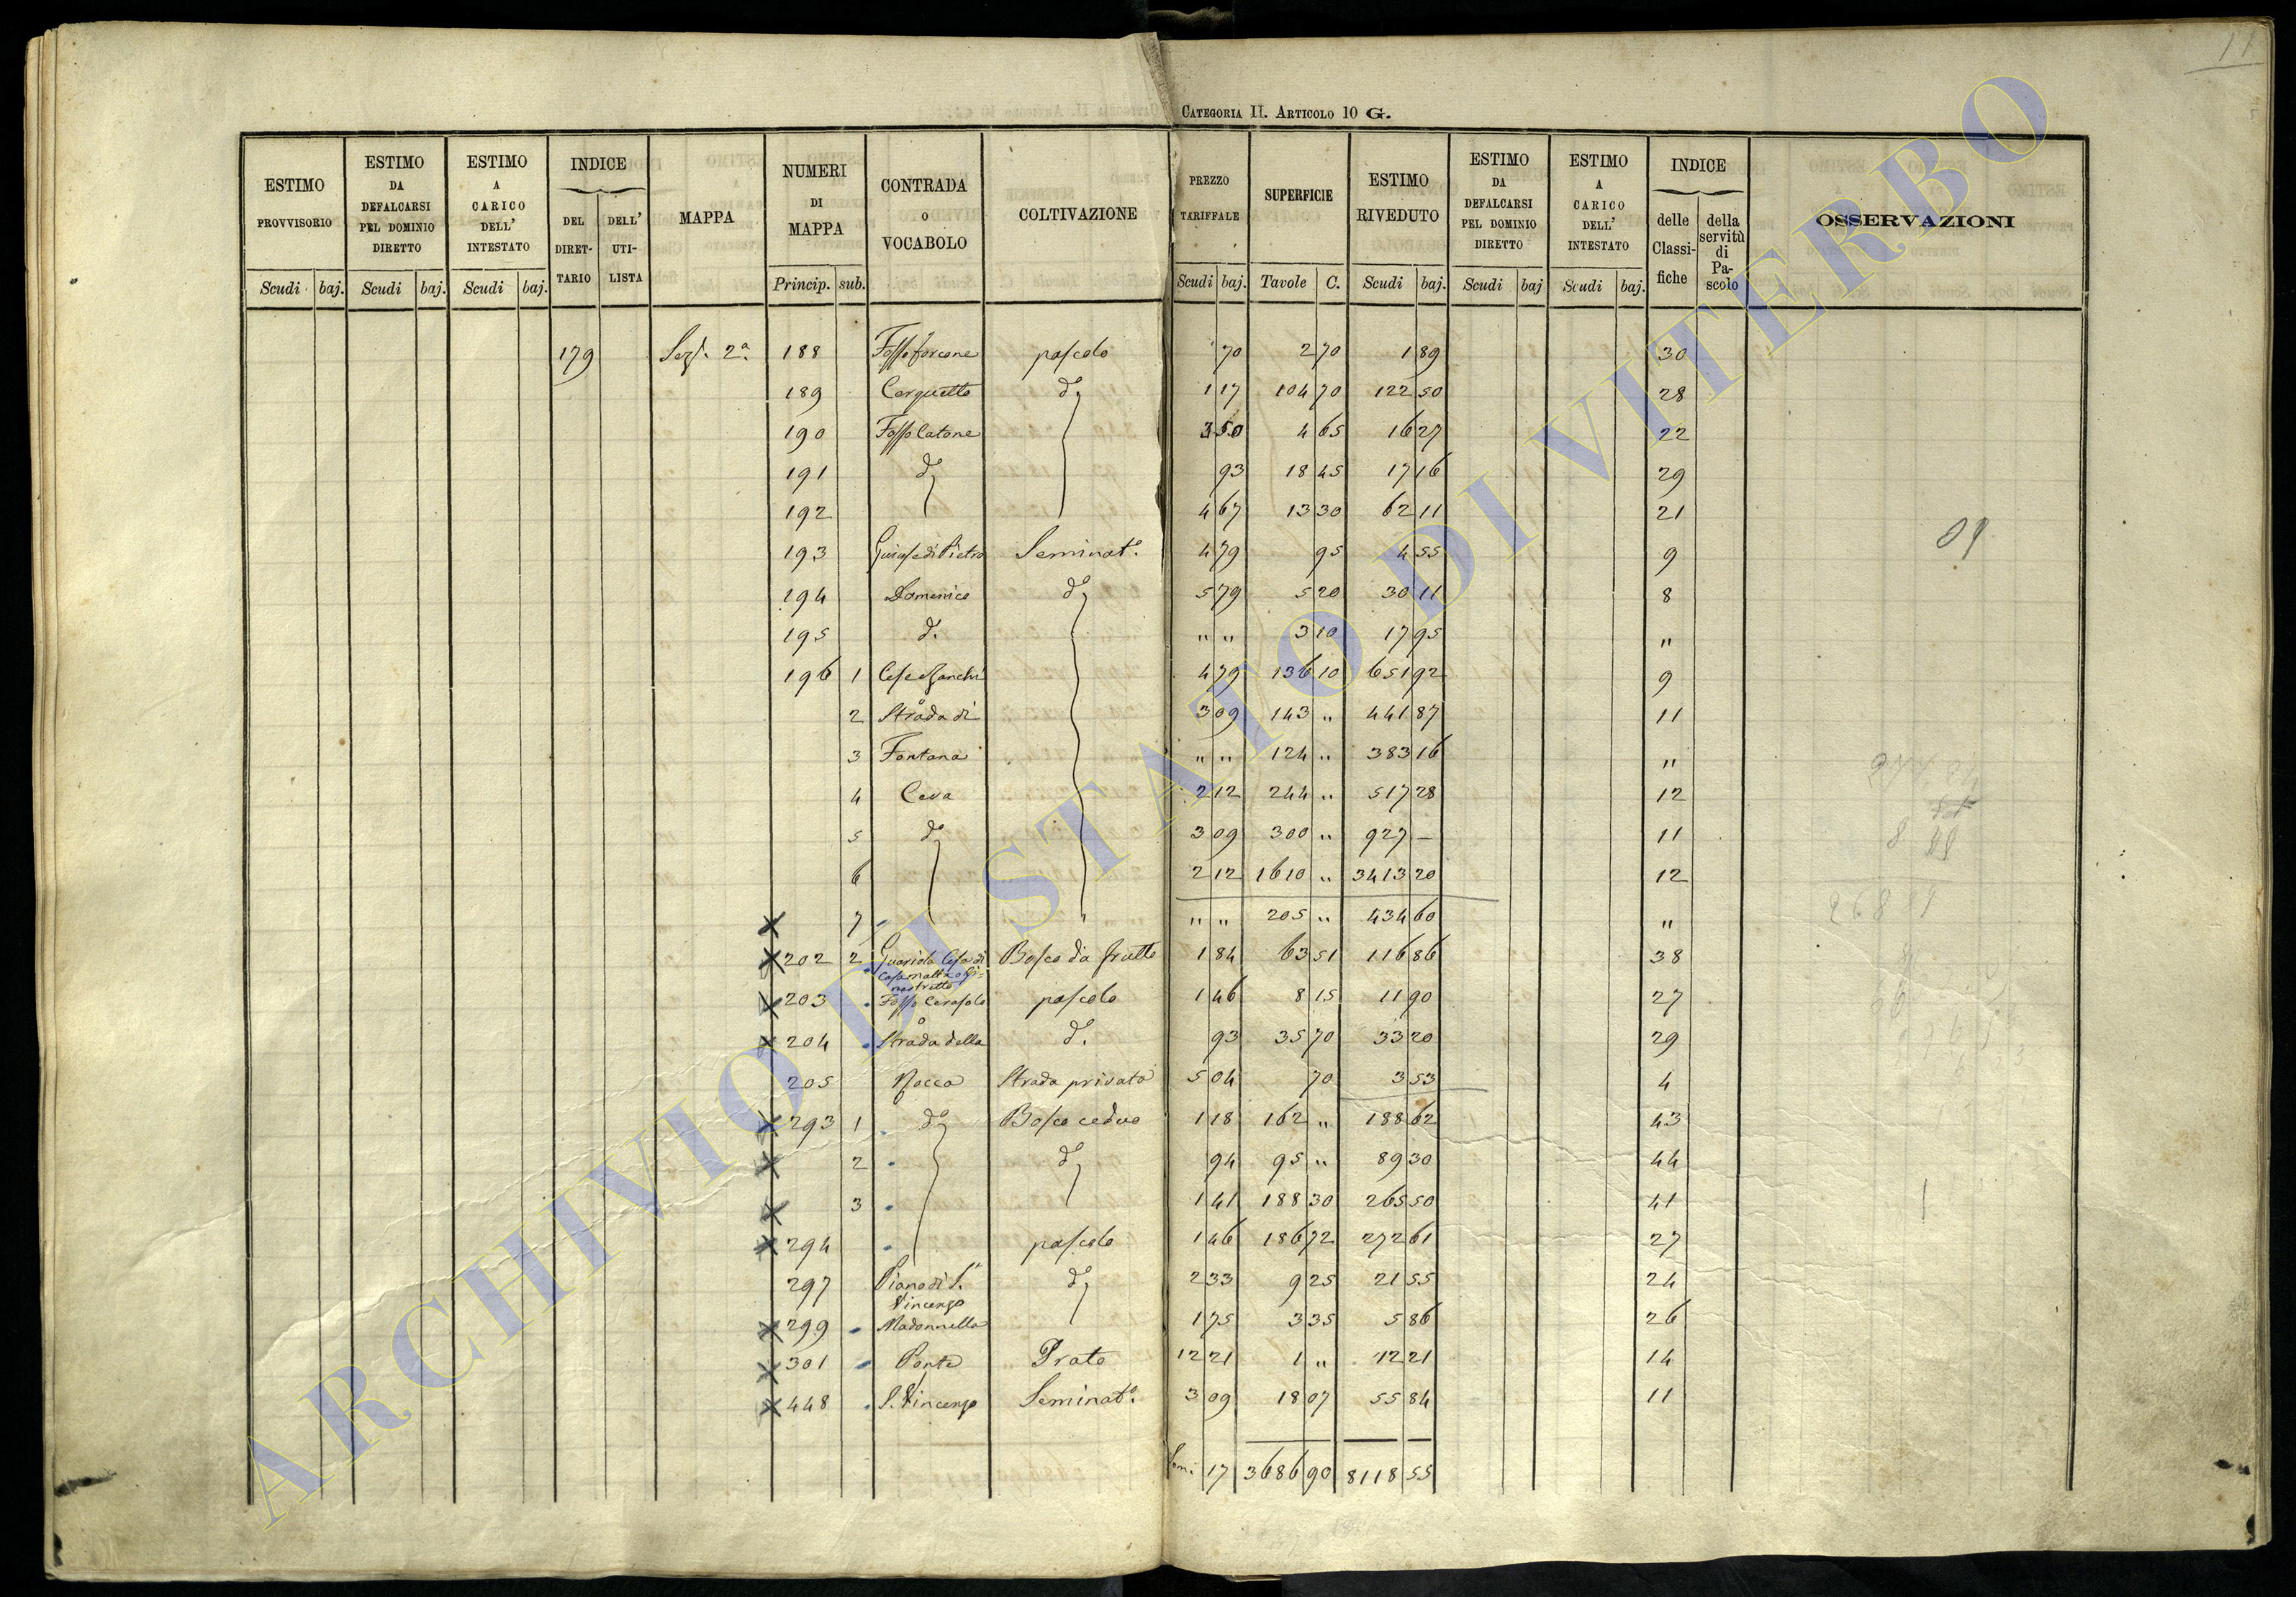 11
CATEGORIA II. ARTICOLO 10 G.
ESTIMO PROVVISORIO | ESTIMO DA DEFALCARSI PEL DOMINIO DIRETTO | ESTIMO A CARICO DELL' INTESTATO | INDICE DEL DIRET-TARIO | DELL' UTI-LISTA | MAPPA | NUMERI DI MAPPA | CONTRADA O VOCABOLO | COLTIVAZIONE | PREZZO TARIFFALE | SUPERFICIE | ESTIMO RIVEDUTO | ESTIMO DA DEFALCARSI PEL DOMINIO DIRETTO | ESTIMO A CARICO DELL' INTESTATO | INDICE delle Classi-fiche | della servitù di Pa-scolo | OSSERVAZIONI
Scudi baj. Scudi baj. Scudi baj. Princip. sub. Scudi baj. Tavole C. Scudi baj. Scudi baj Scudi baj.
179 Sez. 2a. 188 Fosso forcone pascolo 70 2 70 1 89 30
189 Cerquette do. 1 17 104 70 122 50 28
190 Fosso Catone 3 50 4 65 16 27 22
191 do 93 18 45 17 16 29
192 4 67 13 30 62 11 21
193 di Pietro Seminato. 4 79 95 4 55 9
194 Domenico do 5 79 5 20 30 11 8
195 do. " " 3 10 17 95 "
196 1 4 79 136 10 651 92 9
2 Strada di 3 09 143 " 441 87 11
3 Fontana " " 124 " 383 16 "
4 Ceva 2 12 244 " 517 28 12
5 do 3 09 300 " 927 — 11
6 2 12 1610 " 3413 20 12
7 " " 205 " 434 60 "
202 2 Bosco da frutto 1 84 63 51 116 86 38
203 Fosso Cerasolo pascolo 1 46 8 15 11 90 27
204 Strada della do. 93 35 70 33 20 29
205 Rocca Strada privata 5 04 70 3 53 4
293 1 do Bosco ceduo 1 18 162 " 188 62 43
2 do 94 95 " 89 30 44
3 1 41 188 30 265 50 41
294 pascolo 1 46 186 72 272 61 27
297 Piano di S. Vincenzo do 2 33 9 25 21 55 24
299 Madonnella 1 75 3 35 5 86 26
301 Ponte Prato 12 21 1 " 12 21 14
448 S. Vincenzo Seminato. 3 09 18 07 55 84 11
17 3686 90 8118 55
ARCHIVIO DI STATO DI VITERBO